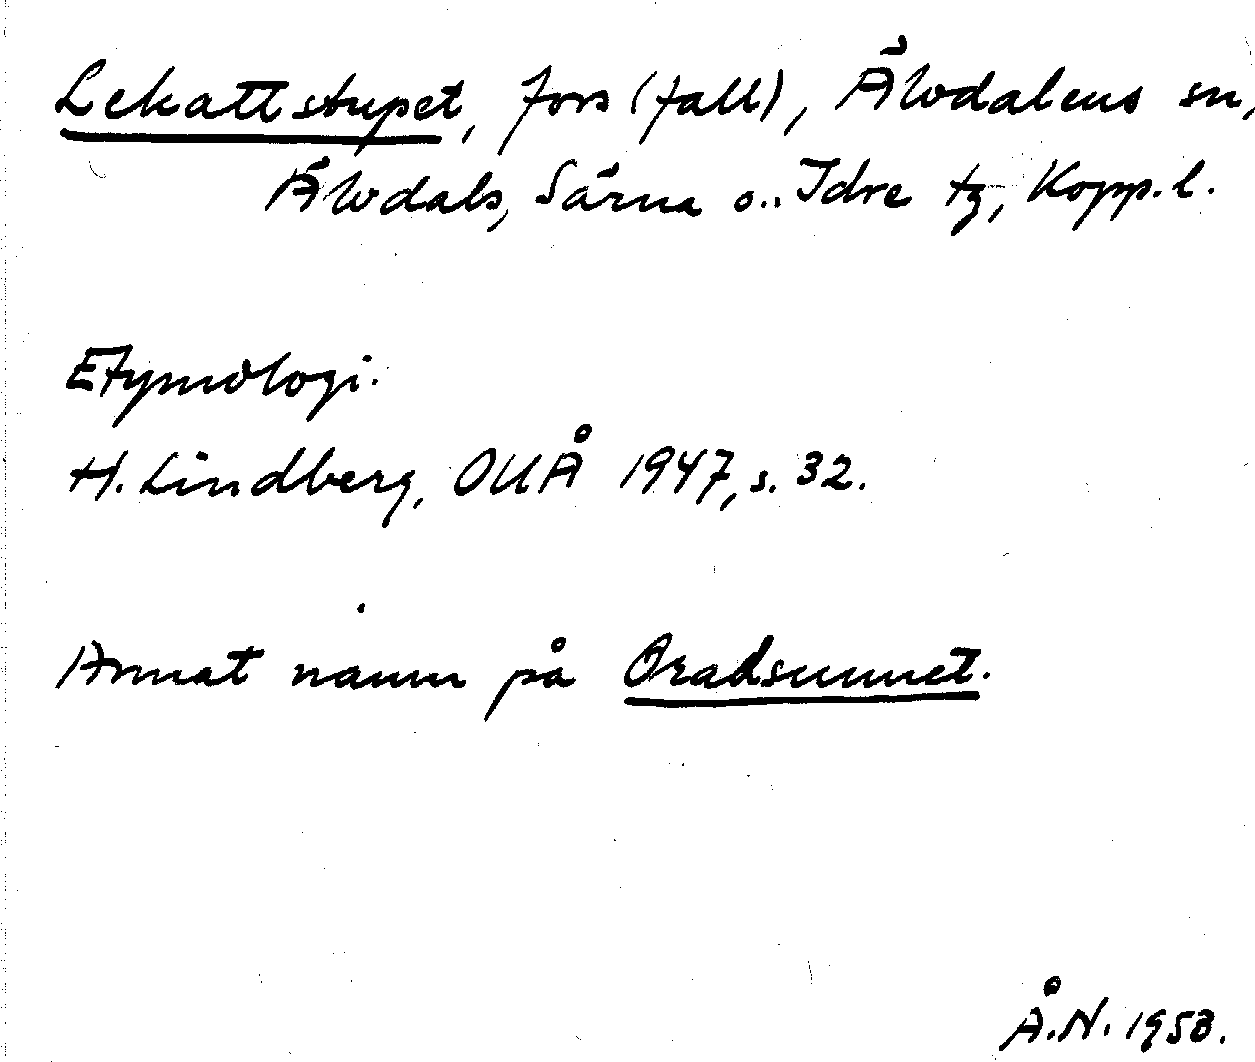 Lekattstupet, fors (fall), Älvdalens sn,
Älvdals, Särna o. Idre tg, Kopp. l.
Etymologi.
H. Lindberg, OUÅ 1947, s. 32.
Annat namn på Oradsunnet.
Å.N. 1953.